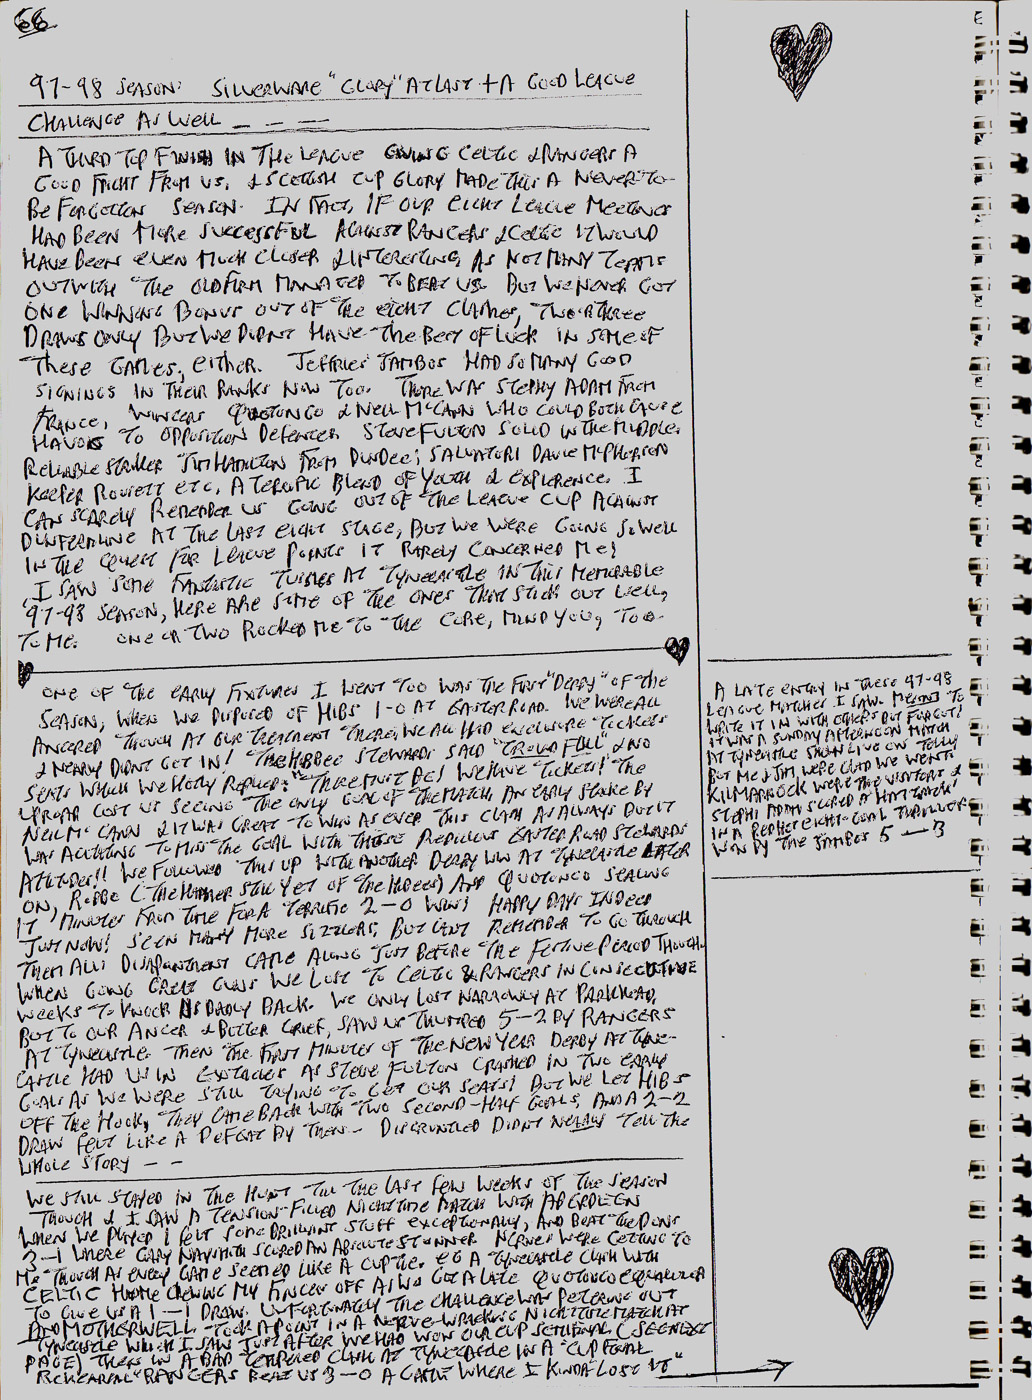 66
97-98 SEASON: SILVERWARE "GLORY" AT LAST + A GOOD LEAGUE
CHALLENGE AS WELL _ _ _
A THIRD TOP FINISH IN THE LEAGUE GIVING CELTIC & RANGERS A
GOOD FRIGHT FROM US, & SCOTTISH CUP GLORY MADE THIS A NEVER TO
BE FORGOTTEN SEASON. IN FACT, IF OUR EIGHT LEAGUE MEETINGS
HAD BEEN MORE SUCCESSFUL AGAINST RANGERS & CELTIC IT WOULD
HAVE BEEN EVEN MUCH CLOSER & INTERESTING, AS NOT MANY TEAMS
OUTWITH THE OLD FIRM MANAGED TO BEAT US. BUT WE NEVER GOT
ONE WINNING BONUS OUT OF THE EIGHT CLASHES, TWO OR THREE
DRAWS ONLY BUT WE DIDN'T HAVE THE BEST OF LUCK IN SOME OF
THESE GAMES, EITHER. JEFFRIES JAMBOS HAD SO MANY GOOD
SIGNINGS IN THEIR RANKS NOW TOO. THERE WAS STEPHY ADAM FROM
FRANCE, WINGERS QUOTONGO & NEIL McCANN WHO COULD BOTH CAUSE
HAVOC TO OPPOSITION DEFENCES. STEVE FULTON SOLID IN THE MIDDLE.
RELIABLE STRIKER JIM HAMILTON FROM DUNDEE; SALVATORI DAVIE McPHERSON
KEEPER ROUSETT ETC. A TERRIFIC BLEND OF YOUTH & EXPERIENCE. I
CAN SCARELY REMEMBER US GOING OUT OF THE LEAGUE CUP AGAINST
DUNFERMLINE AT THE LAST EIGHT STAGE, BUT WE WERE GOING SO WELL
IN THE QUEST FOR LEAGUE POINTS IT RARELY CONCERNED ME!
I SAW SOME FANTASTIC TUSSLES AT TYNECASTLE IN THIS MEMORABLE
97-98 SEASON, HERE ARE SOME OF THE ONES THAT STICK OUT WELL,
TO ME. ONE OR TWO ROCKED ME TO THE CORE, MIND YOU, TOO.
ONE OF THE EARLY FIXTURES I WENT TOO WAS THE FIRST "DERBY" OF THE
SEASON, WHEN WE DISPOSED OF HIBS 1-0 AT EASTER ROAD. WE WERE ALL
ANGERED THOUGH AT OUR TREATMENT THERE, WE ALL HAD ENCLOSURE TICKETS
& NEARLY DIDNT GET IN! THE HIBBEE STEWARDS SAID "GROUND FULL", & NO
SEATS WHICH WE HOTLY REPLIED: "THERE MUST BE! WE HAVE TICKETS! THE
UPROAR COST US SEEING THE ONLY GOAL OF THE MATCH AN EARLY STRIKE BY
NEIL McCANN & IT WAS GREAT TO WIN AS EVER THIS CLASH AS ALWAYS BUT IT
WAS AGITATING TO MISS THE GOAL WITH THESE REDICULOUS EASTER ROAD STEWARDS
ATTITUDES!! WE FOLLOWED THIS UP WITH ANOTHER DERBY WIN AT TYNECASTLE LATER
ON, ROBBO (THE HAMMER STILL YET OF THE HIBEES) AND QUOTONGO SEALING
IT MINUTES FROM TIME FOR A TERRIFIC 2-0 WIN! HAPPY DAYS INDEED
JUST NOW! SEEN MANY MORE SIZZLERS, BUT CAN'T REMEMBER TO GO THROUGH
THEM ALL! DISAPPOINTMENT CAME ALONG JUST BEFORE THE FESTIVE PERIOD THOUGH
WHEN GOING GREAT GUNS WE LOST TO CELTIC & RANGERS IN CONSECUTIVE
WEEKS TO KNOCK US BADLY BACK. WE ONLY LOST NARROWLY AT PARKHEAD,
BUT TO OUR ANGER & BITTER GRIEF, SAW US THUMPED 5-2 BY RANGERS
AT TYNECASTLE. THEN THE FIRST MINUTES OF THE NEW YEAR DERBY AT TYNE-
CASTLE HAD US IN EXSTACIES AS STEVE FULTON CRASHED IN TWO EARLY
GOALS AS WE WERE STILL TRYING TO GET OUR SEATS! BUT WE LET HIBS
OFF THE HOOK, THEY CAME BACK WITH TWO SECOND-HALF GOALS, AND A 2-2
DRAW FELT LIKE A DEFEAT BY THEN - DISGRUNTLED DIDNT NEARLY TELL THE
WHOLE STORY - -
WE STILL STAYED IN THE HUNT TILL THE LAST FEW WEEKS OF THE SEASON
THOUGH & I SAW A TENSION-FILLED NIGHTTIME MATCH WITH ABERDEEN
WHEN WE PLAYED I FELT SOME BRILLIANT STUFF EXCEPTIONALLY, AND BEAT THE DONS
3-1 WHERE GARY NAYSMITH SCORED AN ABSOLUTE STUNNER. NERVES WERE GETTING TO
ME THOUGH AS EVERY GAME SEEMED LIKE A CUP TIE. EG A TYNECASTLE CLASH WITH
CELTIC HAD ME CHEWING MY FINGER OFF AS WE GOT A LATE QUOTONGO EQUALIZER
TO GIVE US A 1-1 DRAW. UNFORTUNATELY THE CHALLENGE WAS PETERING OUT
AND MOTHERWELL TOOK A POINT IN A NERVE-WRACKING NIGHTTIME MATCH AT
TYNECASTLE WHICH I SAW JUST AFTER WE HAD WON OUR CUP SEMIFINAL (SEE NEXT
PAGE) THEN IN A BAD TEMPERED CLASH AT TYNECASTLE IN A "CUP FINAL
REHEARSAL" RANGERS BEAT US 3-0 A GAME WHERE I KINDA "LOST IT"
A LATE ENTRY IN THESE 97-98
LEAGUE MATCHES I SAW. MEANT TO
WRITE IT IN WITH OTHERS BUT FORGOT!
IT WAS A SUNDAY AFTERNOON MATCH
AT TYNECASTLE SHOWN LIVE ON TELLY
BUT ME & JIM, WERE GLAD WE WENT.
KILMARNOCK WERE THE VISITORS &
STEPH ADAM SCORED A HAT-TRACK
IN A PERFECT EIGHT-GOAL THRILLER
WON BY THE JAMBOS 5-3